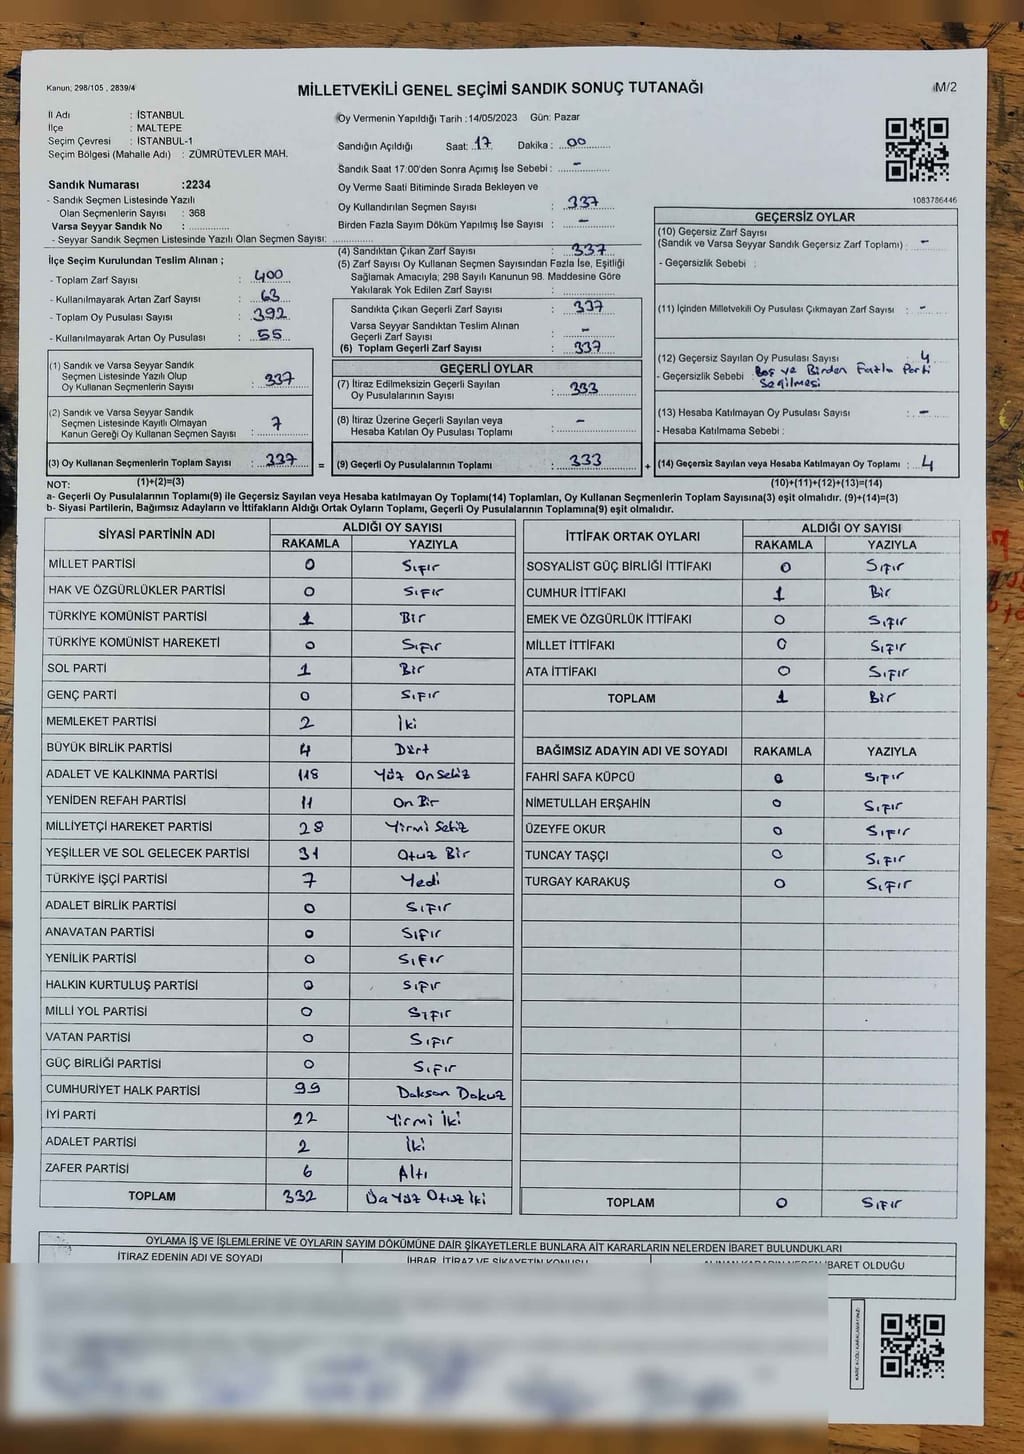 Kanun; 298/105 , 2839/4
MİLLETVEKİLİ GENEL SEÇİMİ SANDIK SONUÇ TUTANAĞI
M/2
İl Adı : İSTANBUL
İlçe : MALTEPE
Seçim Çevresi : İSTANBUL-1
Seçim Bölgesi (Mahalle Adı) : ZÜMRÜTEVLER MAH.
Sandık Numarası :2234
- Sandık Seçmen Listesinde Yazılı
Olan Seçmenlerin Sayısı : 368
Varsa Seyyar Sandık No : ..............
- Seyyar Sandık Seçmen Listesinde Yazılı Olan Seçmen Sayısı: ..............
İlçe Seçim Kurulundan Teslim Alınan ;
- Toplam Zarf Sayısı : 400
- Kullanılmayarak Artan Zarf Sayısı : 63
- Toplam Oy Pusulası Sayısı : 392
- Kullanılmayarak Artan Oy Pusulası : 55
(1) Sandık ve Varsa Seyyar Sandık
Seçmen Listesinde Yazılı Olup
Oy Kullanan Seçmenlerin Sayısı : 337
(2) Sandık ve Varsa Seyyar Sandık
Seçmen Listesinde Kayıtlı Olmayan
Kanun Gereği Oy Kullanan Seçmen Sayısı : 7
(3) Oy Kullanan Seçmenlerin Toplam Sayısı : 337 =
Oy Vermenin Yapıldığı Tarih :14/05/2023 Gün: Pazar
Sandığın Açıldığı Saat: 17 Dakika : 00
Sandık Saat 17:00'den Sonra Açımış İse Sebebi : -
Oy Verme Saati Bitiminde Sırada Bekleyen ve
Oy Kullandırılan Seçmen Sayısı : 337
Birden Fazla Sayım Döküm Yapılmış İse Sayısı : -
(4) Sandıktan Çıkan Zarf Sayısı : 337
(5) Zarf Sayısı Oy Kullanan Seçmen Sayısından Fazla İse, Eşitliği
Sağlamak Amacıyla; 298 Sayılı Kanunun 98. Maddesine Göre
Yakılarak Yok Edilen Zarf Sayısı : ..............
Sandıkta Çıkan Geçerli Zarf Sayısı : 337
Varsa Seyyar Sandıktan Teslim Alınan
Geçerli Zarf Sayısı : -
(6) Toplam Geçerli Zarf Sayısı : 337
GEÇERLİ OYLAR
(7) İtiraz Edilmeksizin Geçerli Sayılan
Oy Pusulalarının Sayısı : 333
(8) İtiraz Üzerine Geçerli Sayılan veya
Hesaba Katılan Oy Pusulası Toplamı : -
(9) Geçerli Oy Pusulalarının Toplamı : 333 +
1083786446
GEÇERSİZ OYLAR
(10) Geçersiz Zarf Sayısı
(Sandık ve Varsa Seyyar Sandık Geçersiz Zarf Toplamı) : -
- Geçersizlik Sebebi :
(11) İçinden Milletvekili Oy Pusulası Çıkmayan Zarf Sayısı : -
(12) Geçersiz Sayılan Oy Pusulası Sayısı : 4
- Geçersizlik Sebebi : Boş ve Birden Fazla Parti
Seçilmesi
(13) Hesaba Katılmayan Oy Pusulası Sayısı : -
- Hesaba Katılmama Sebebi :
(14) Geçersiz Sayılan veya Hesaba Katılmayan Oy Toplamı : 4
NOT: (1)+(2)=(3) (10)+(11)+(12)+(13)=(14)
a- Geçerli Oy Pusulalarının Toplamı(9) ile Geçersiz Sayılan veya Hesaba katılmayan Oy Toplamı(14) Toplamları, Oy Kullanan Seçmenlerin Toplam Sayısına(3) eşit olmalıdır. (9)+(14)=(3)
b- Siyasi Partilerin, Bağımsız Adayların ve İttifakların Aldığı Ortak Oyların Toplamı, Geçerli Oy Pusulalarının Toplamına(9) eşit olmalıdır.
SİYASİ PARTİNİN ADI ALDIĞI OY SAYISI
RAKAMLA YAZIYLA
MİLLET PARTİSİ 0 Sıfır
HAK VE ÖZGÜRLÜKLER PARTİSİ 0 Sıfır
TÜRKİYE KOMÜNİST PARTİSİ 1 Bir
TÜRKİYE KOMÜNİST HAREKETİ 0 Sıfır
SOL PARTİ 1 Bir
GENÇ PARTİ 0 Sıfır
MEMLEKET PARTİSİ 2 İki
BÜYÜK BİRLİK PARTİSİ 4 Dört
ADALET VE KALKINMA PARTİSİ 118 Yüz On Sekiz
YENİDEN REFAH PARTİSİ 11 On Bir
MİLLİYETÇİ HAREKET PARTİSİ 28 Yirmi Sekiz
YEŞİLLER VE SOL GELECEK PARTİSİ 31 Otuz Bir
TÜRKİYE İŞÇİ PARTİSİ 7 Yedi
ADALET BİRLİK PARTİSİ 0 Sıfır
ANAVATAN PARTİSİ 0 Sıfır
YENİLİK PARTİSİ 0 Sıfır
HALKIN KURTULUŞ PARTİSİ 0 Sıfır
MİLLİ YOL PARTİSİ 0 Sıfır
VATAN PARTİSİ 0 Sıfır
GÜÇ BİRLİĞİ PARTİSİ 0 Sıfır
CUMHURİYET HALK PARTİSİ 99 Doksan Dokuz
İYİ PARTİ 22 Yirmi İki
ADALET PARTİSİ 2 İki
ZAFER PARTİSİ 6 Altı
TOPLAM 332 Üç Yüz Otuz İki
İTTİFAK ORTAK OYLARI ALDIĞI OY SAYISI
RAKAMLA YAZIYLA
SOSYALİST GÜÇ BİRLİĞİ İTTİFAKI 0 Sıfır
CUMHUR İTTİFAKI 1 Bir
EMEK VE ÖZGÜRLÜK İTTİFAKI 0 Sıfır
MİLLET İTTİFAKI 0 Sıfır
ATA İTTİFAKI 0 Sıfır
TOPLAM 1 Bir
BAĞIMSIZ ADAYIN ADI VE SOYADI RAKAMLA YAZIYLA
FAHRİ SAFA KÜPCÜ 0 Sıfır
NİMETULLAH ERŞAHİN 0 Sıfır
ÜZEYFE OKUR 0 Sıfır
TUNCAY TAŞÇI 0 Sıfır
TURGAY KARAKUŞ 0 Sıfır
TOPLAM 0 Sıfır
OYLAMA İŞ VE İŞLEMLERİNE VE OYLARIN SAYIM DÖKÜMÜNE DAİR ŞİKAYETLERLE BUNLARA AİT KARARLARIN NELERDEN İBARET BULUNDUKLARI
İTİRAZ EDENİN ADI VE SOYADI İHBAR, İTİRAZ VE ŞİKAYETİN KONUSU ALINAN KARARIN NEDEN İBARET OLDUĞU